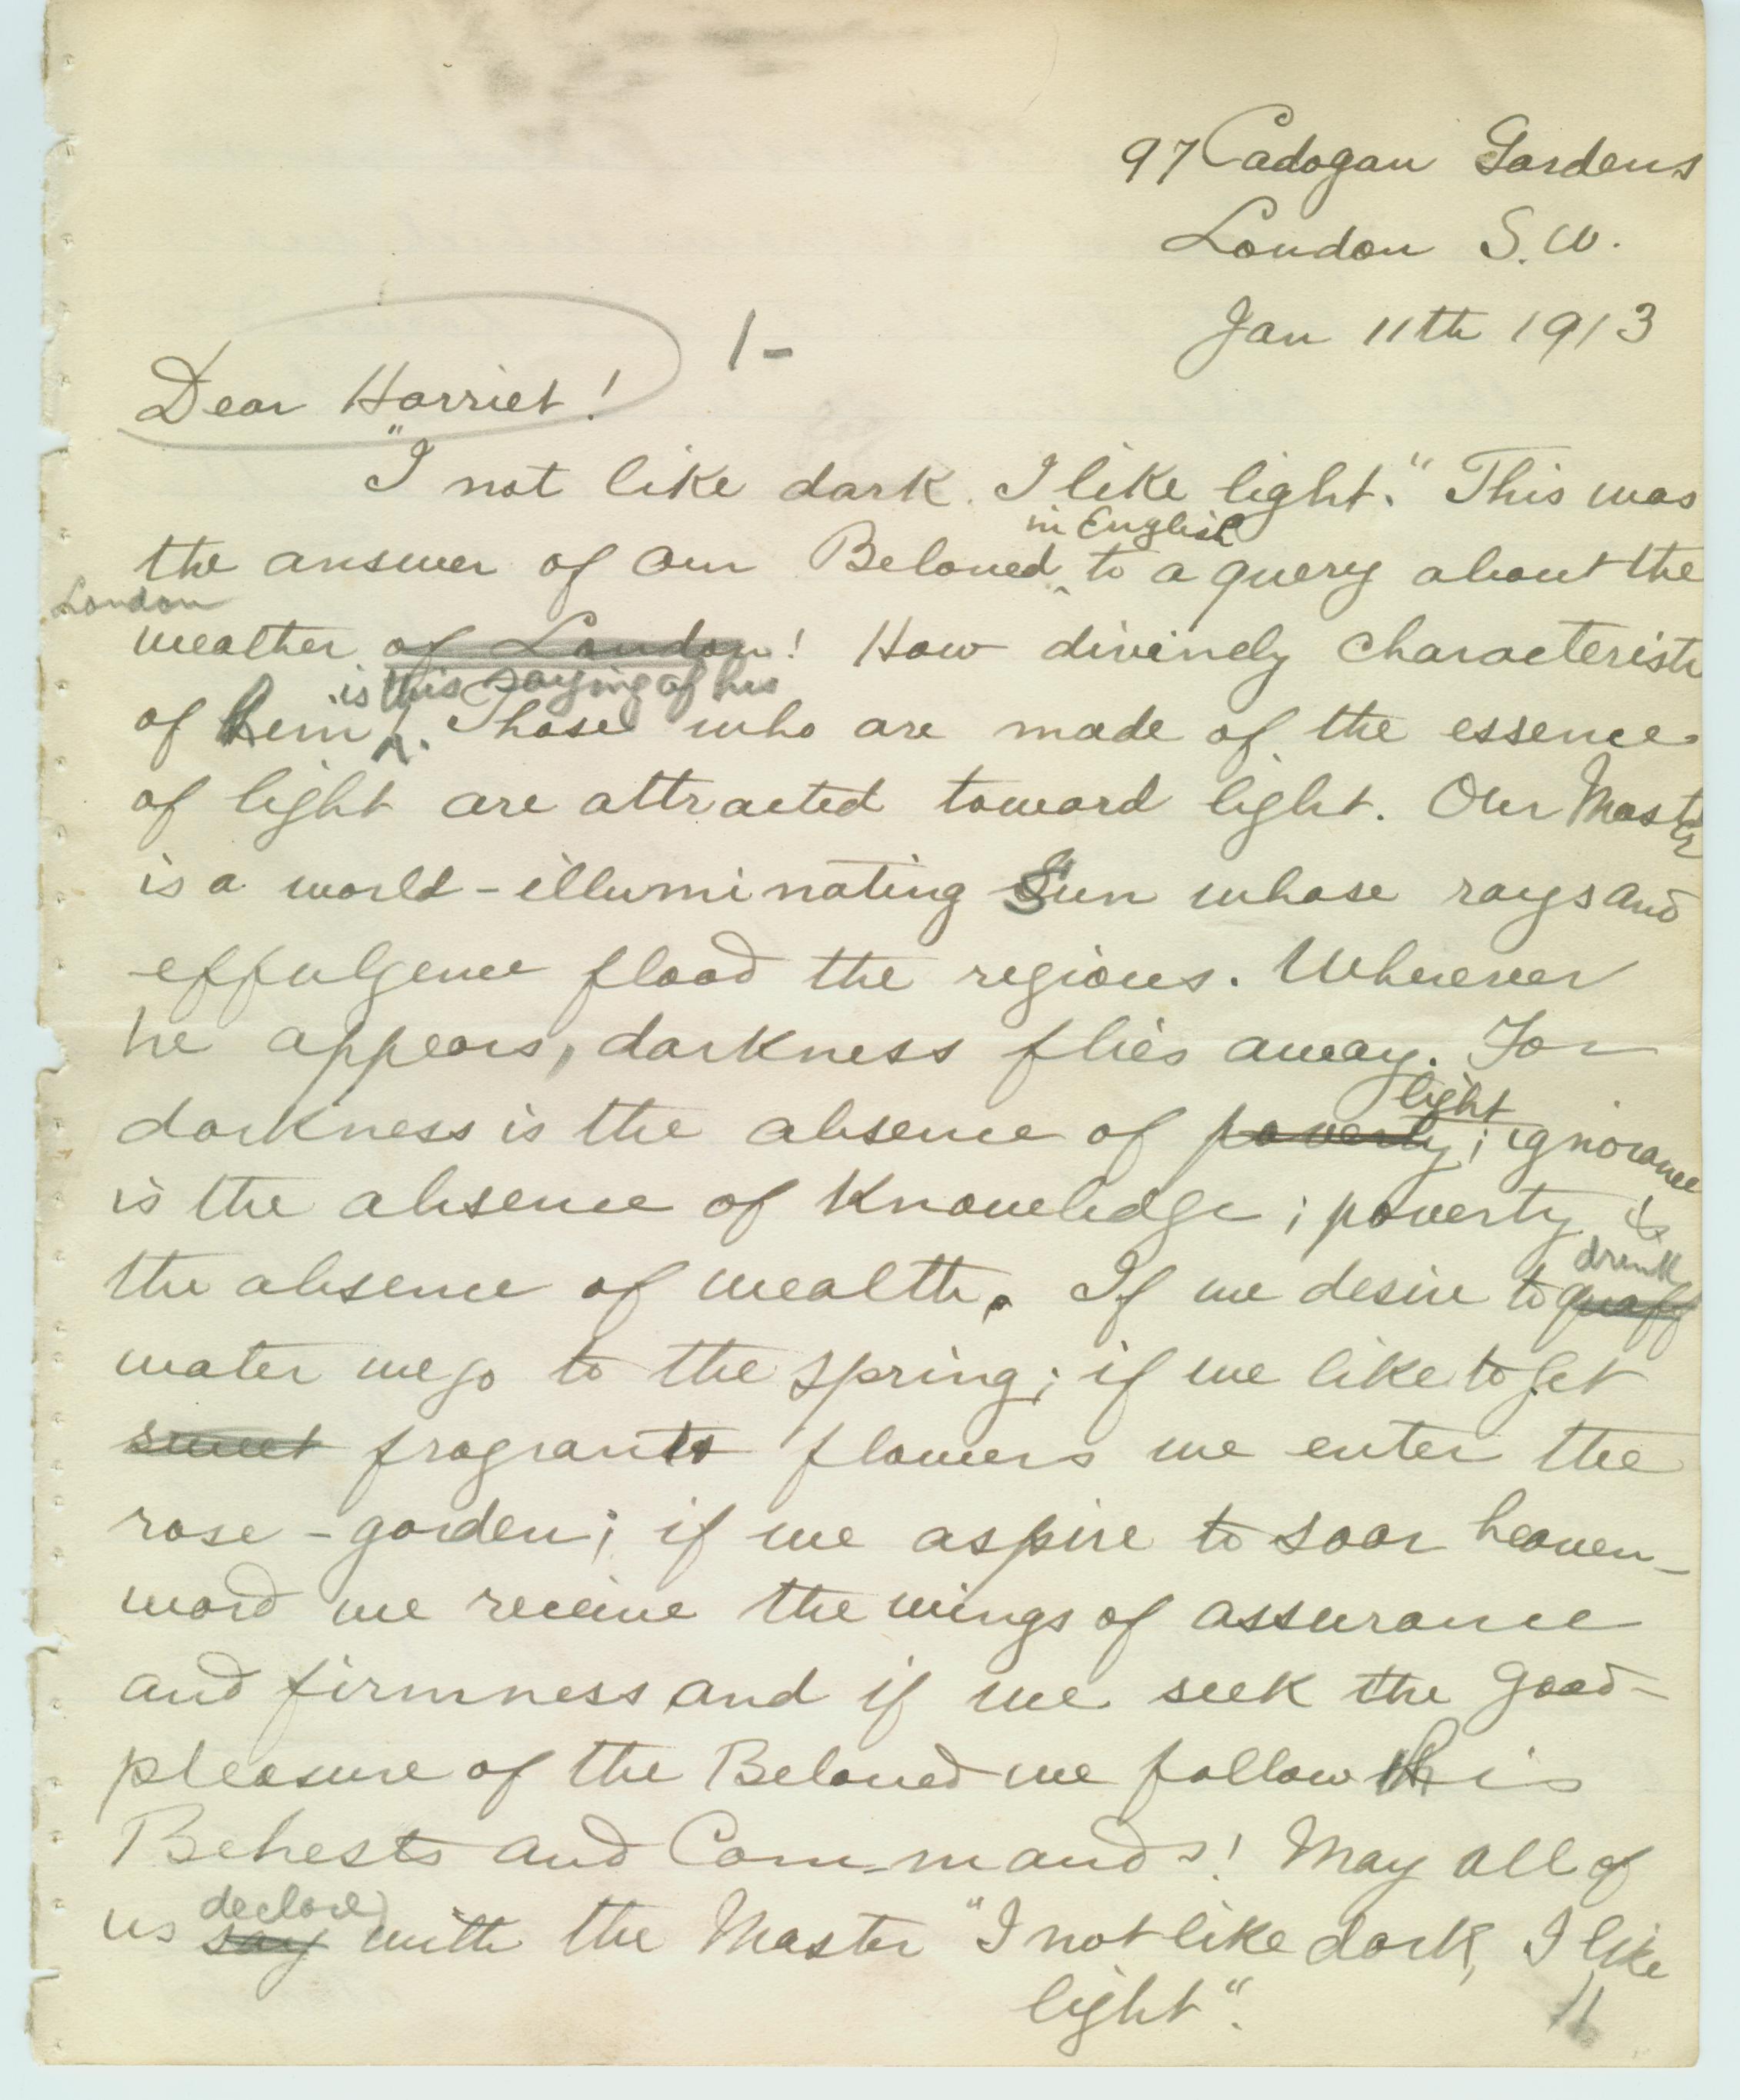 97 Cadogan Gardens
London S.W.
Jan 11th 1913
1-
Dear Harriet!
"I not like dark. I like light." This was
in English
the answer of our Beloved to a query about the
London
weather of London! How divinely characteristic
is this saying of his
of him! Those who are made of the essence
of light are attracted toward light. Our Master
is a world-illuminating Sun whose rays and
effulgence flood the regions. Wherever
he appears, darkness flies away. For
light
darkness is the absence of poverty; ignorance
is the absence of knowledge; poverty is
drink
the absence of wealth. If we desire to quaff
water we go to the spring; if we like to get
sweet fragrant flowers we enter the
rose-garden; if we aspire to soar heaven-
ward we receive the wings of assurance
and firmness and if we seek the good-
pleasure of the Beloved we follow His
Behests and Commands! May all of
declare
us say with the Master "I not like dark, I like
light".